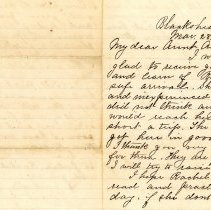 Blackshe
Mar. 28
My dear Aunt, A
I w
glad to receive y
and learn of
safe arrival. 
and inexperienced
did not think an
would reach he
short a trip. The
got here in goo
I thank you, my
for them. They are
I will try to
I hope Rachel
read and pract
day. if she don